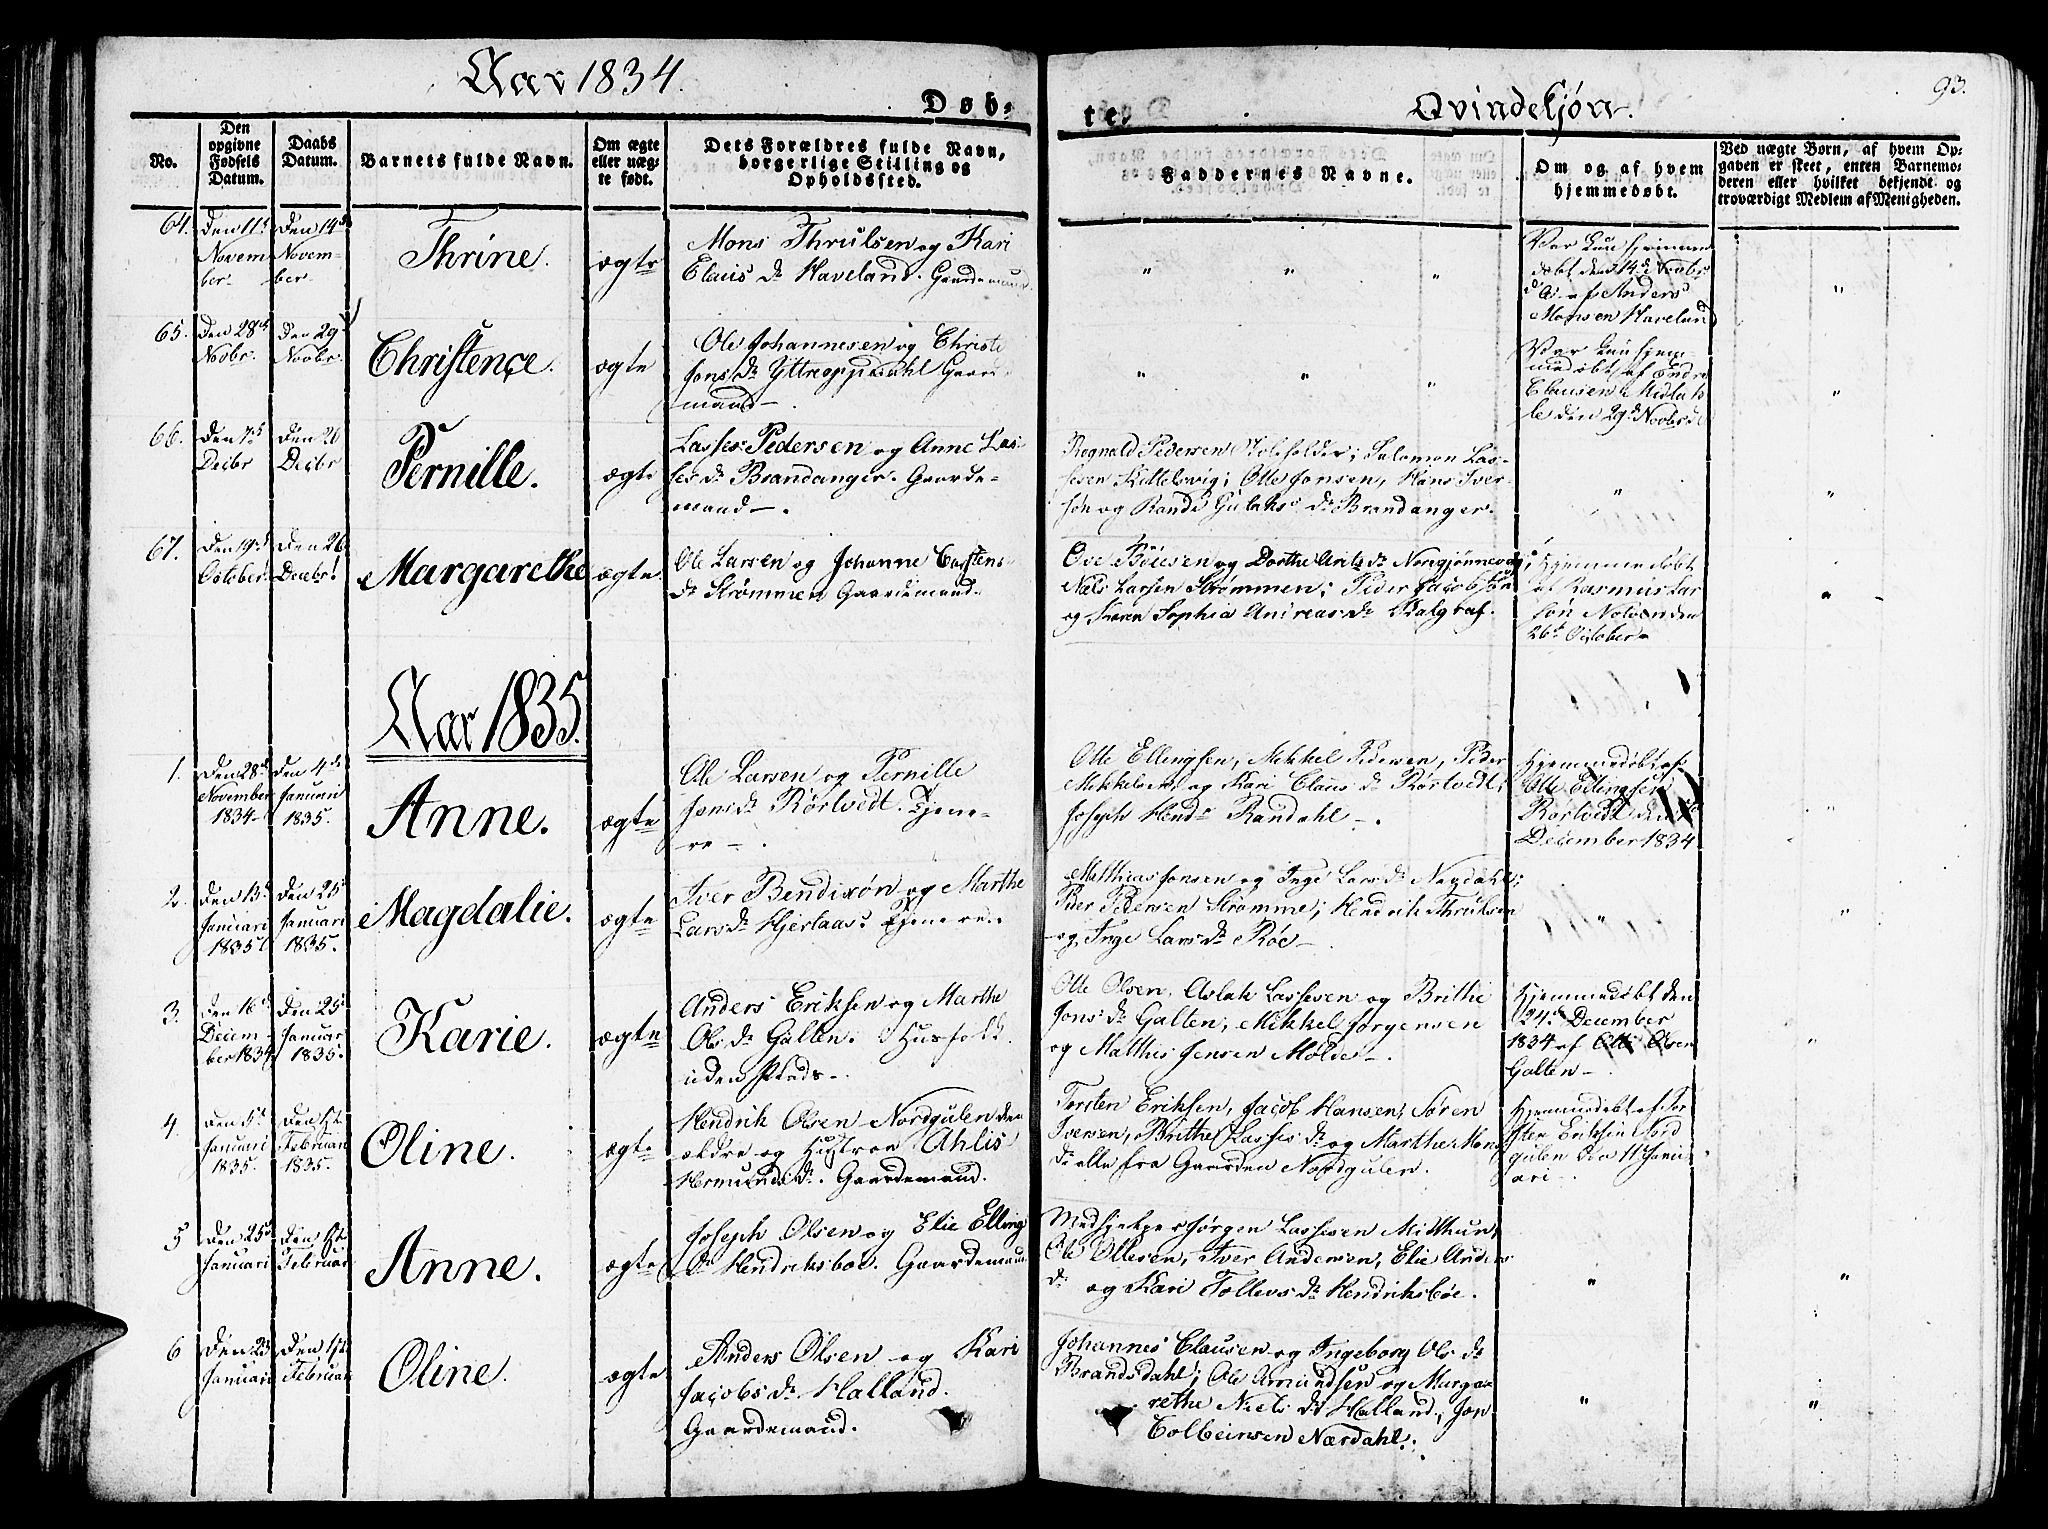 Aar 1834.
Døb-
te.
Qvindekjøn.
93.
No.
Den
opgivne
Fødsels
Datum.
Daabs
Datum.
Barnets fulde Navn.
Om ægte
eller uæg-
te født.
Dets Forældres fulde Navn,
borgerlige Stilling og
Opholdssted.
Faddernes Navne.
Om og af hvem
hjemmedøbt.
Ved uægte Børn, af hvem Op-
gaven er skeet, enten Barnemo-
deren eller hvilket bekjendt og
troværdigt Medlem af Menigheden.
64.
Den 11t
Novem
ber
Den 14de
Novem-
ber
Thrine.
ægte
Mons Thrulsen og Kari
Claus Dr Haveland. Gaardemand.
" " "
Var kun hjemme
døbt den 14de Novbr
af Anders
Monsen Haveland
"
65.
Den 28de
Novbr.
Den 29
Novbr.
Christence.
ægte
Ole Johannesen og Christi
Jons Dr Yttreoppedahl Gaar-
mand.
" " "
Var kun hjem-
medøbt af Endre
Clausen Midtun
le den 29de Novbr
"
66.
Den 7de
Decbr
Den 26
Decbr
Pernille.
ægte
Lasse Pedersen og Anne Las-
ses Dr Brandanger. Gaarde-
mand.
Regnald Pedersen Skoleholder; Salomon Las-
sesen Kittelsvig; Otte Jonsen, Hans Iver-
søn og Randi Gulaks Dr Brandanger.
"
"
67.
Den 19de
October
Den 26
Decbr!
Margarethe
ægte.
Ole Larsen og Johanne Carstens
Dr Strømmen Gaardemand.
Ove Böiesen og Dorthe Arits Dr Norgjønnevog;
Niels Larsen Strømmen; Peder Jacobsøn
og Karen Sophia Andreas Dr Kalgraf.
Hjemmedøbt
af Rasmus Lar
søn Nolven den
26de October
"
Aar 1835.
1.
Den 28de
November
1834
Den 4de
Januari
1835.
Anne.
ægte
Ole Larsen og Pernille
Jons Dr Rørtvedt. Tjene-
re.
Otte Ellingsen, Mikkel Pedersen, Peder
Mikkelsen, og Kari Claus Dr Rørtvedt;
Joseph Hend- Randahl.
Hjemmedøbt af
Otte Ellingsen
Rørtvedt den
December 1834
"
2.
Den 13de
Januari
1835.
Den 25de
Januari
1835.
Magdalie.
ægte
Iver Bendixøn og Marthe
Lars Dr Hjertaas. Tjenere.
Matthias Jonsen og Inge Lars Dr Nægdahl;
Peder Pedersen Strømme; Hendrik Thrulsen
og Inge Lars Dr Röe.
"
"
3.
Den 16de
Decem-
ber 1834
Den 25de
Januar
1835.
Karie.
ægte
Anders Eriksen og Marthe
Ols Dr Galten. Husfolk
uden Plads.
Otte Olsen, Aslak Lassesen og Brithe
Jons Dr Galten; Mikkel Jørgensen
og Matthis Jensen Mølde.
Hjemmedøbt den
24de December
1834 af Otte Olsen
Galten.
"
4.
Den 5te
Januari
1835.
Den 1ste
Februari
1835.
Oline.
ægte
Hendrik Olsen Nordgulen den
ældre og Hustroe Ahlis
Hermunds Dr. Gaardemand.
Torsten Eriksen, Jacob Hansen, Søren
Iversen, Brithe Lasses Dr og Marthe Mons
Dr alle fra Gaarden Nordgulen.
Hjemmedøbt af Tor
sten Eriksen Nord
gulen den 11 Janu
ari.
5
Den 25de
Januari
Den 1ste
Februar
Anne.
ægte
Joseph Olsen og Elie Elling
Dr Hendriksbøe. Gaardemand
Medhjelper Jørgen Lassesen Midthun;
Ole Ottesen, Iver Andersen, Elie Anders
Dr og Kari Tollevs Dr Hendriksbøe.
"
"
6
Den 23
Januari
Den 1ste
Februar
Oline.
ægte
Anders Olsen og Kari
Jacobs Dr Halland.
Gaardemand.
Johannes Clausen og Ingeborg Ols Dr
Brandsdahl; Ole Amundsen og Marga-
rethe Niels Dr Halland; Jon
Colbeinsen Nærdahl.
"
"